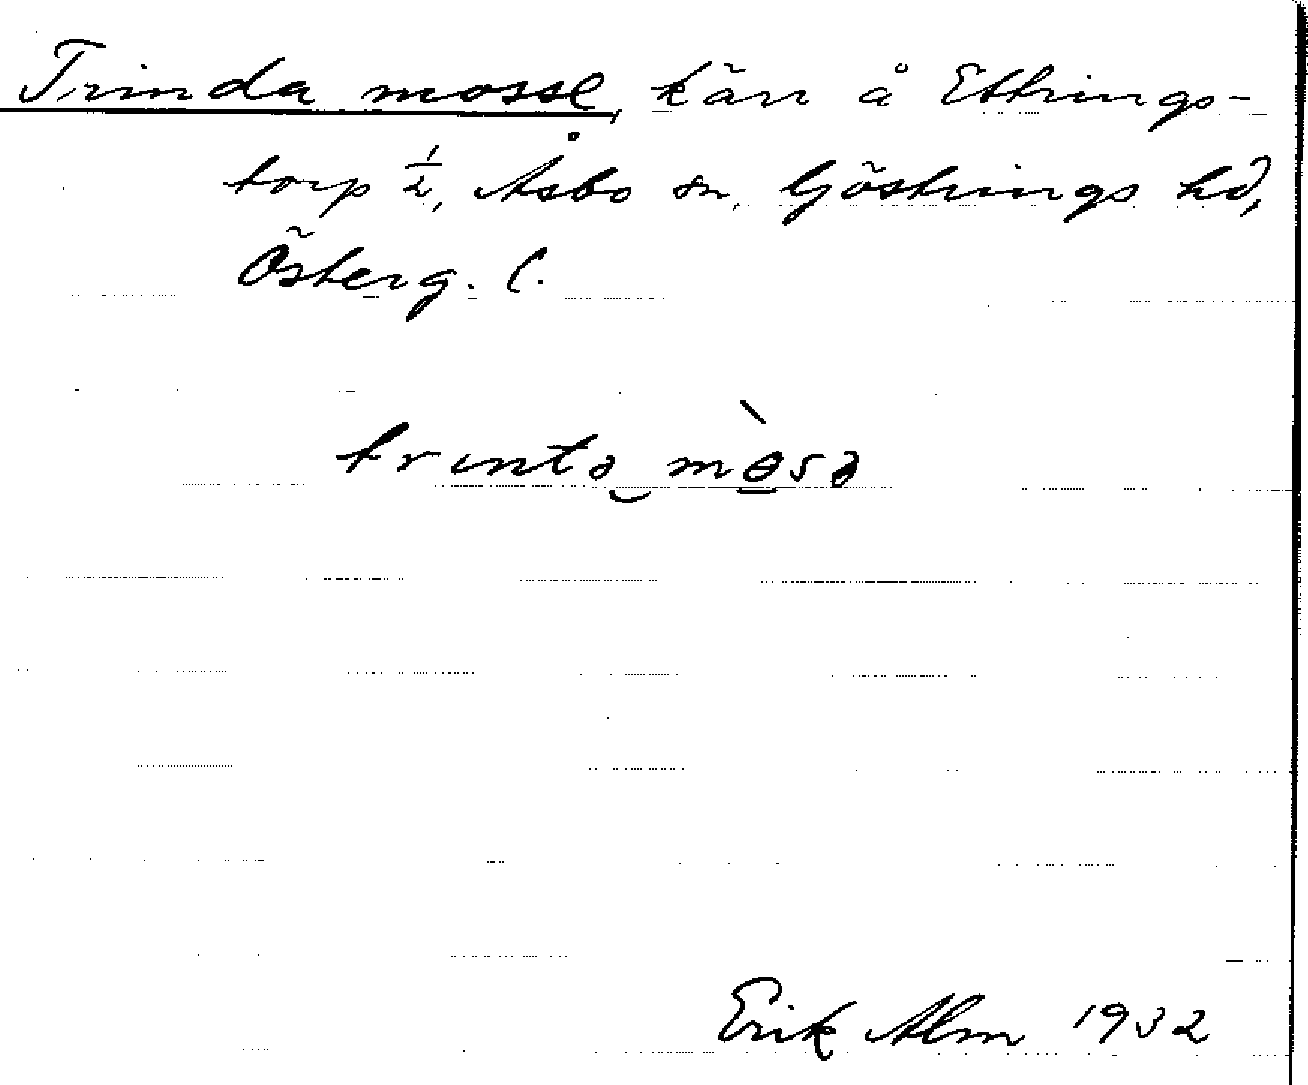 Trinda mosse, kärr å Ettrings-
torp ½, Åsbo sn, Göstrings hd,
Österg. l.
trınta mòsə
Erik Alm 1932